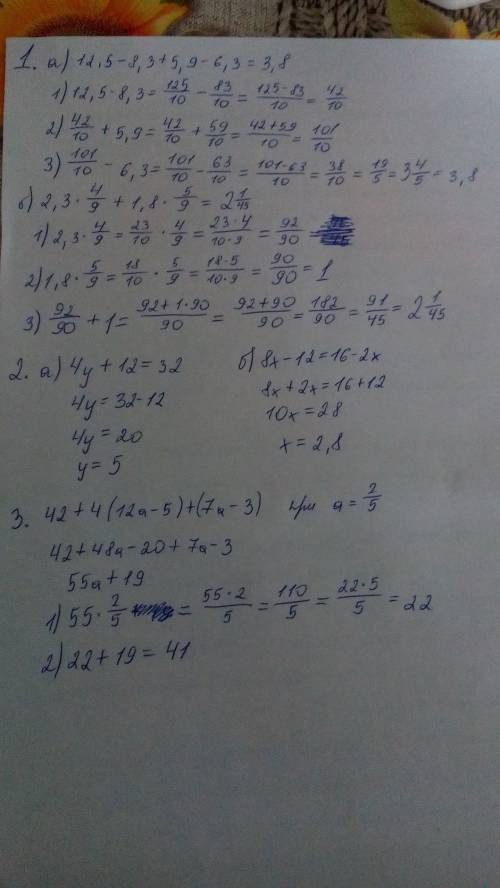 1. а) 12,5 - 8,3 + 5,9 - 6,3 = 3,8
1) 12,5 - 8,3 = 125/10 - 83/10 = 125-83/10 = 42/10
2) 42/10 + 5,9 = 42/10 + 59/10 = 42+59/10 = 101/10
3) 101/10 - 6,3 = 101/10 - 63/10 = 101-63/10 = 38/10 = 19/5 = 3 4/5 = 3,8
б) 2,3 · 4/9 + 1,8 · 5/9 = 2 1/45
1) 2,3 · 4/9 = 23/10 · 4/9 = 23·4/10·9 = 92/90
2) 1,8 · 5/9 = 18/10 · 5/9 = 18·5/10·9 = 90/90 = 1
3) 92/90 + 1 = 92+1·90/90 = 92+90/90 = 182/90 = 91/45 = 2 1/45
2. а) 4y + 12 = 32
4y = 32-12
4y = 20
y = 5
б) 8x - 12 = 16 - 2x
8x + 2x = 16 + 12
10x = 28
x = 2,8
3. 42 + 4(12a - 5) + (7a - 3) при a = 2/5
42 + 48a - 20 + 7a - 3
55a + 19
1) 55 · 2/5 = 55·2/5 = 110/5 = 22·5/5 = 22
2) 22 + 19 = 41